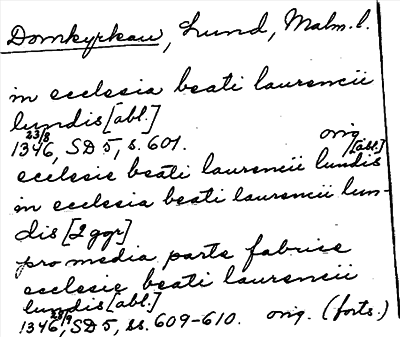 Domkyrkan, Lund, Malm. l.
in ecclesia beati laurencii
lundis [abl.]
23/8
1346, SD 5, s. 601. orig.
ecclesie beati laurencii lundis [abl.]
in ecclesia beati laurencii lun-
dis [2 ggr]
pro media parte fabrice
ecclesie beati laurencii
lundis [abl.]
1346, SD 5, ss. 609-610. orig. (forts.)